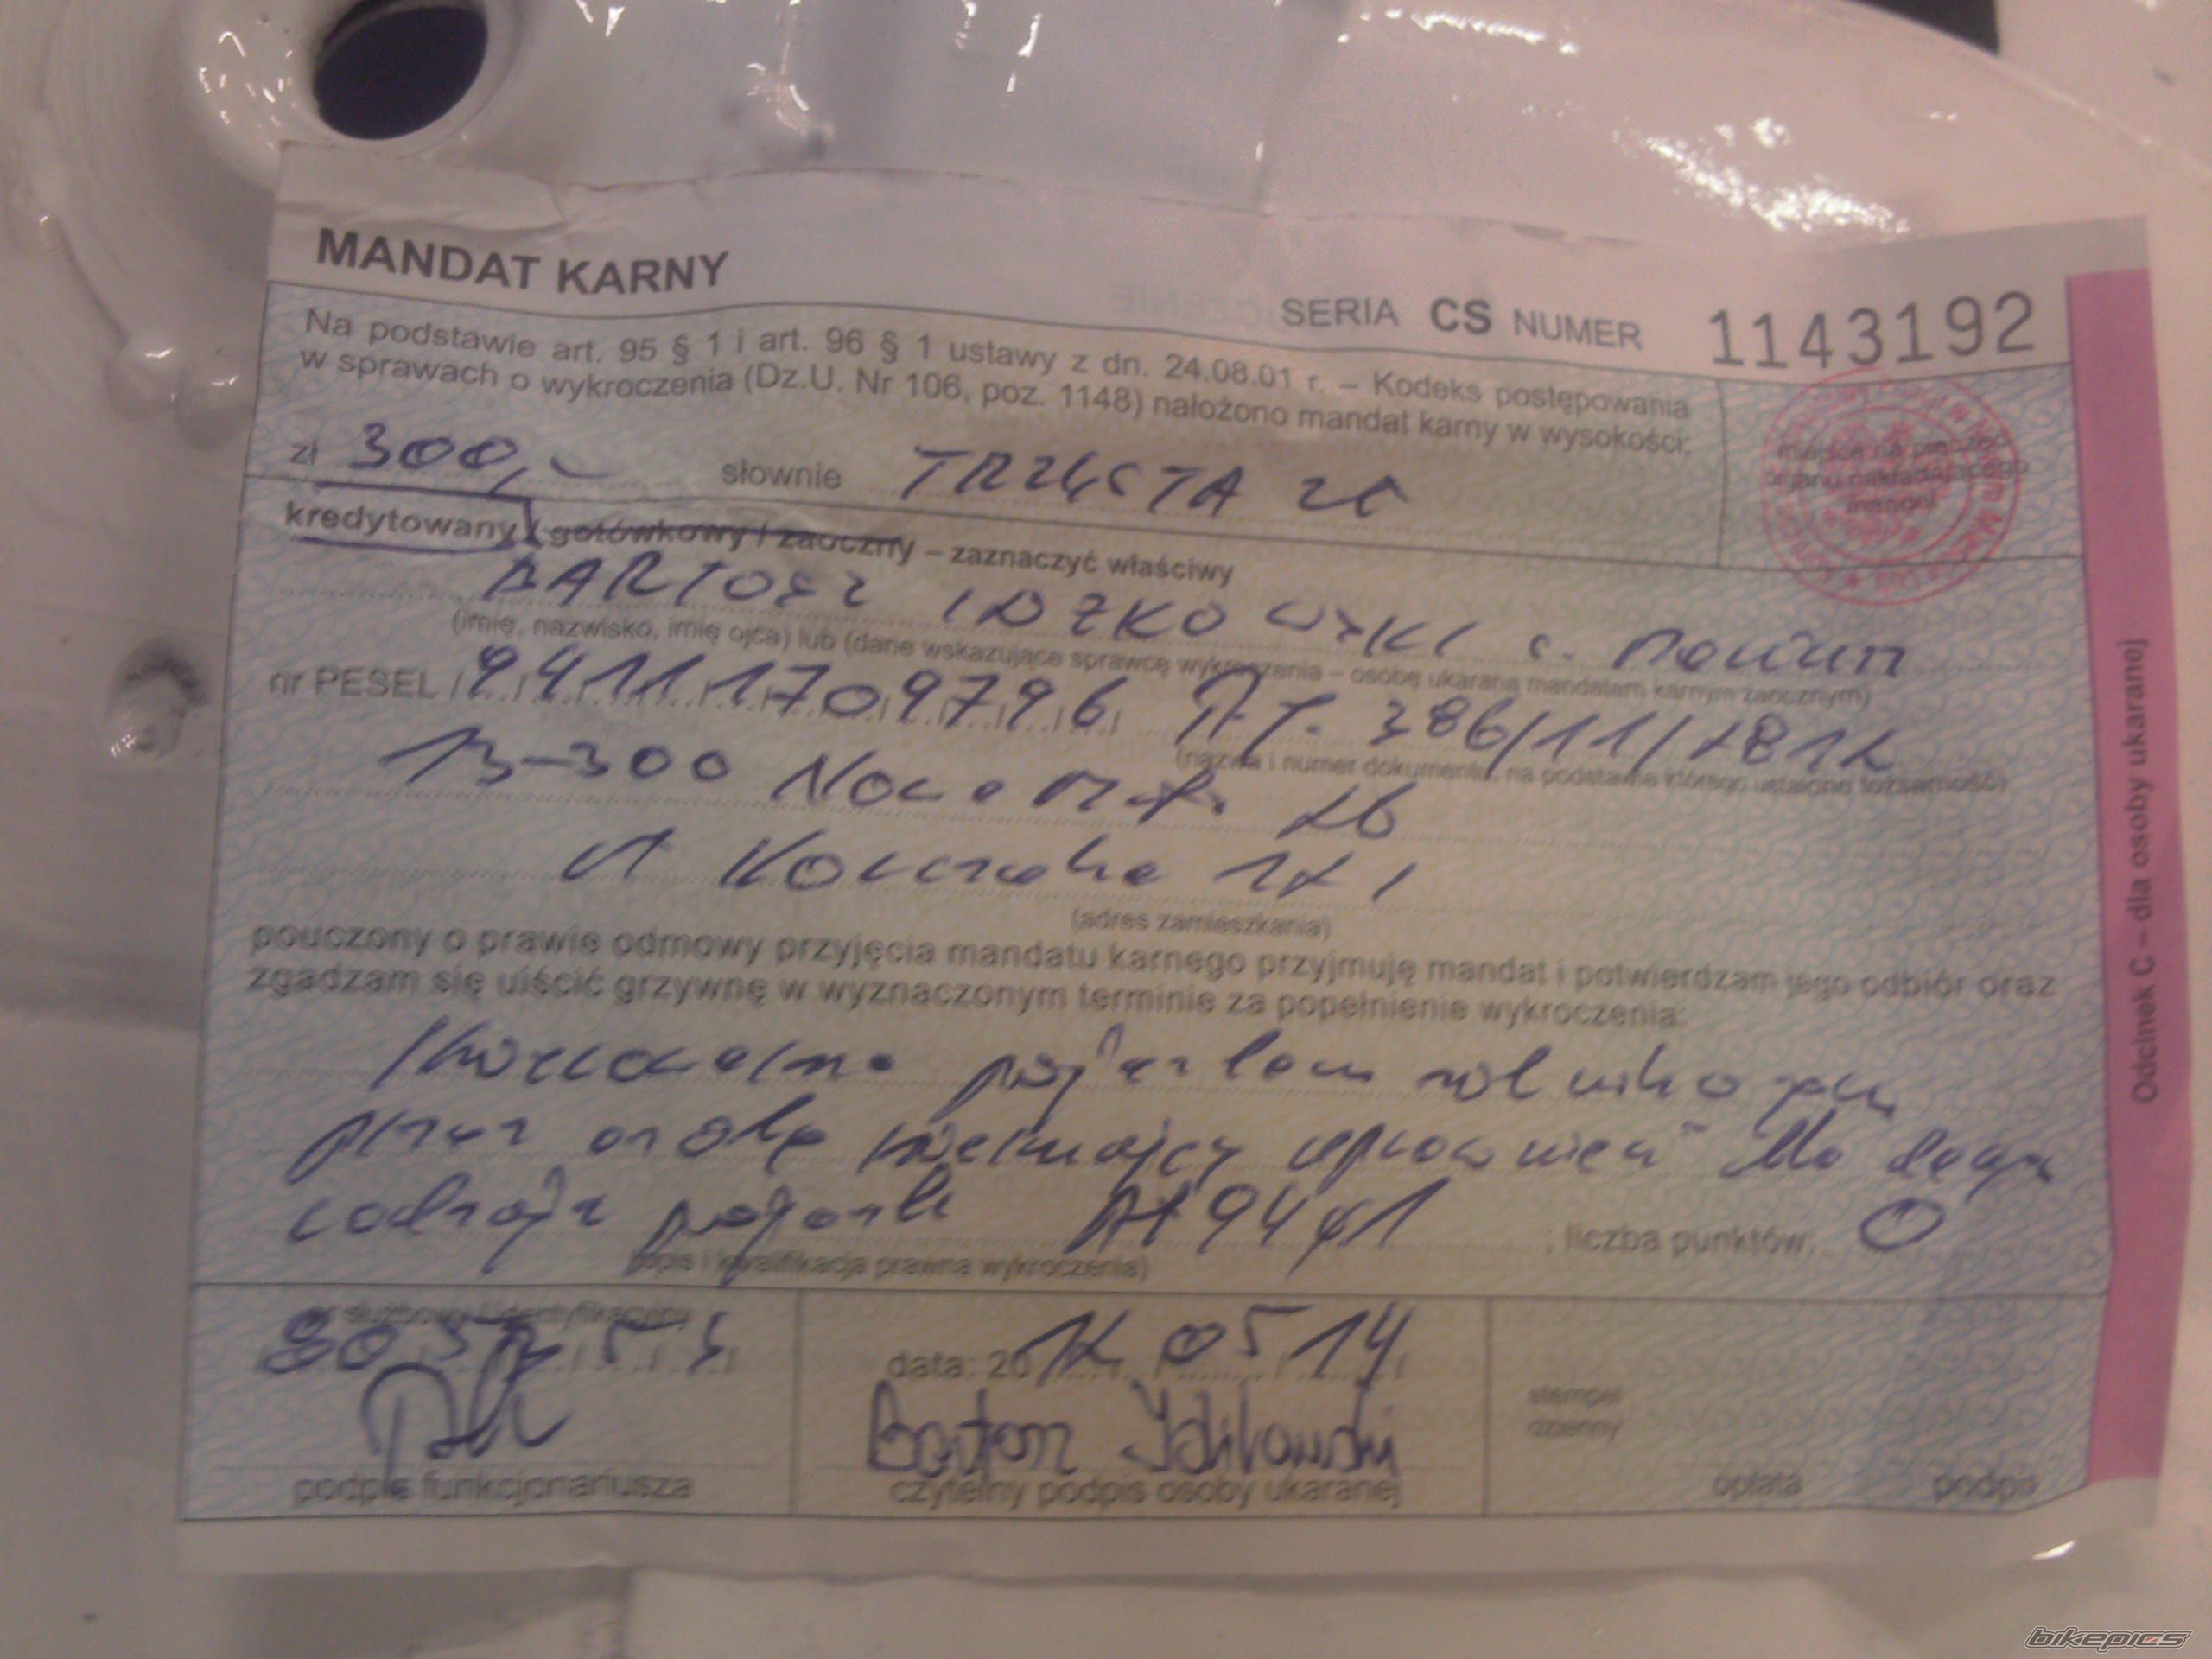 MANDAT KARNY
SERIA CS NUMER 1143192
Na podstawie art. 95 § 1 i art. 96 § 1 ustawy z dn. 24.08.01 r. – Kodeks postępowania
w sprawach o wykroczenia (Dz.U. Nr 106, poz. 1148) nałożono mandat karny w wysokości:
miejsce na pieczęć
organu nakładającego
zł 300,- słownie TRZYSTA ZŁ
kredytowany / gotówkowy / zaoczny – zaznaczyć właściwy
BARTOSZ
(imię, nazwisko, imię ojca) lub (dane wskazujące sprawcę wykroczenia – osobę ukaraną mandatem karnym zaocznym)
nr PESEL 94111709796 386/11/2812
(nazwa i numer dokumentu, na podstawie którego ustalono tożsamość)
13-300 Nowe
(adres zamieszkania)
pouczony o prawie odmowy przyjęcia mandatu karnego przyjmuję mandat i potwierdzam jego odbiór oraz
zgadzam się uiścić grzywnę w wyznaczonym terminie za popełnienie wykroczenia:
Kierowanie pojazdem rolniczym
przez osobę nieimającą uprawnień do tego
rodzaju pojazdu 94 § 1 ; liczba punktów: 0
(opis i kwalifikacja prawna wykroczenia)
nr służbowy / identyfikacyjny
data: 2012 05 14
stempel
dzienny
Bartosz
podpis funkcjonariusza
czytelny podpis osoby ukaranej
opłata
podpis
Odcinek C – dla osoby ukaranej
bikepics